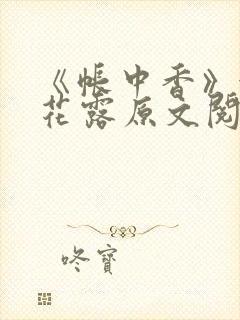 《帳中香》
花露原文
咚寶